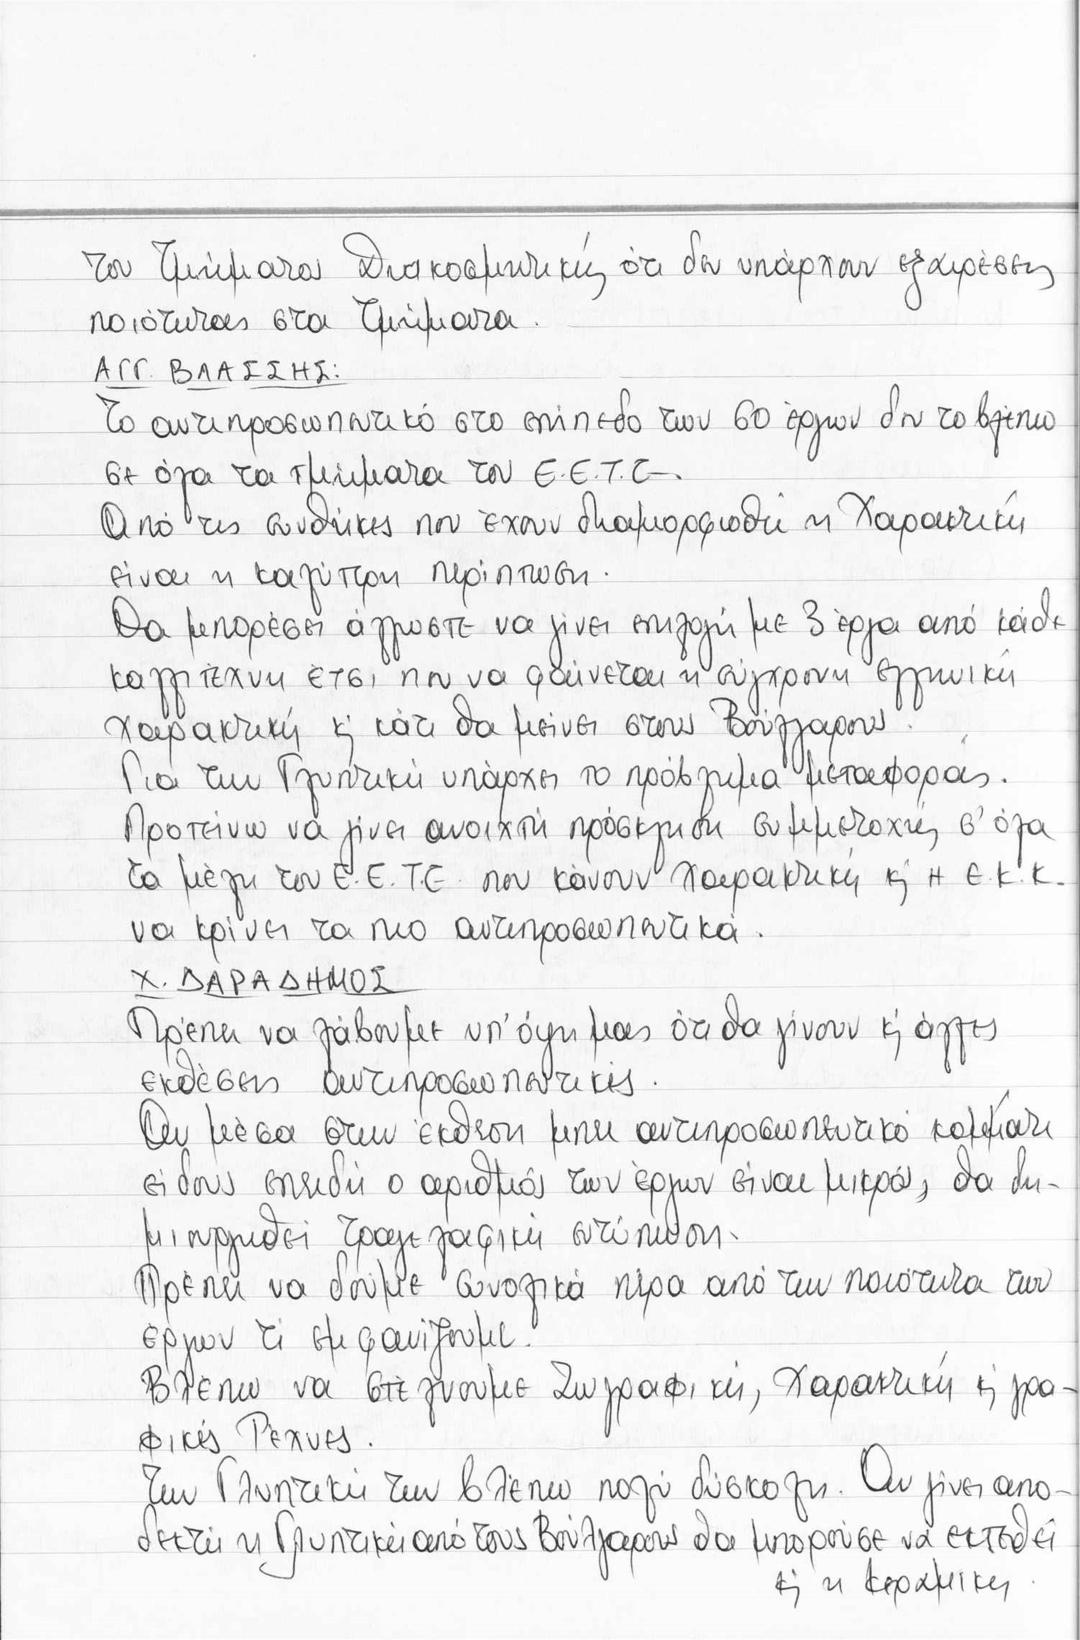 του Τμήματος Διακοσμητικής ότι δεν υπάρχουν εξαιρέσεις
ποιότητας στα Τμήματα.
ΑΓΓ. ΒΛΑΣΣΗΣ:
Το αντιπροσωπευτικό στο επίπεδο των 60 έργων δεν το βλέπω
σε όλα τα τμήματα του Ε.Ε.Τ.Ε.
Από τις συνθήκες που έχουν διαμορφωθεί η Χαρακτική
είναι η καλύτερη περίπτωση.
Θα μπορέσει άλλωστε να γίνει επιλογή με 3 έργα από κάθε
καλλιτέχνη έτσι που να φαίνεται η σύγχρονη ελληνική
χαρακτική κ' κάτι θα μείνει στους Βούλγαρους.
Για την Γλυπτική υπάρχει το πρόβλημα μεταφοράς.
Προτείνω να γίνει ανοιχτή πρόσκληση συμμετοχής σ' όλα
τα μέλη του Ε.Ε.Τ.Ε. που κάνουν Χαρακτική κ' η Ε.Κ.Κ.
να κρίνει τα πιο αντιπροσωπευτικά.
Χ. ΔΑΡΑΔΗΜΟΣ
Πρέπει να λάβουμε υπ' όψη μας ότι θα γίνουν κ' άλλες
εκθέσεις αντιπροσωπευτικές.
Αν μέσα στην έκθεση μπει αντιπροσωπευτικό κομμάτι
είδους επειδή ο αριθμός των έργων είναι μικρός, θα δη-
μιουργηθεί τραγελαφική εντύπωση.
Πρέπει να δούμε συνολικά πέρα από την ποιότητα των
έργων τι εμφανίζουμε.
Βλέπω να στέλνουμε Ζωγραφική, Χαρακτική κ' γρα-
φικές Τέχνες.
Την Γλυπτική την βλέπω πολύ δύσκολη. Αν γίνει απο-
δεκτή η Γλυπτική από τους Βούλγαρους θα μπορούσε να εκτεθεί
κ' η κεραμική.